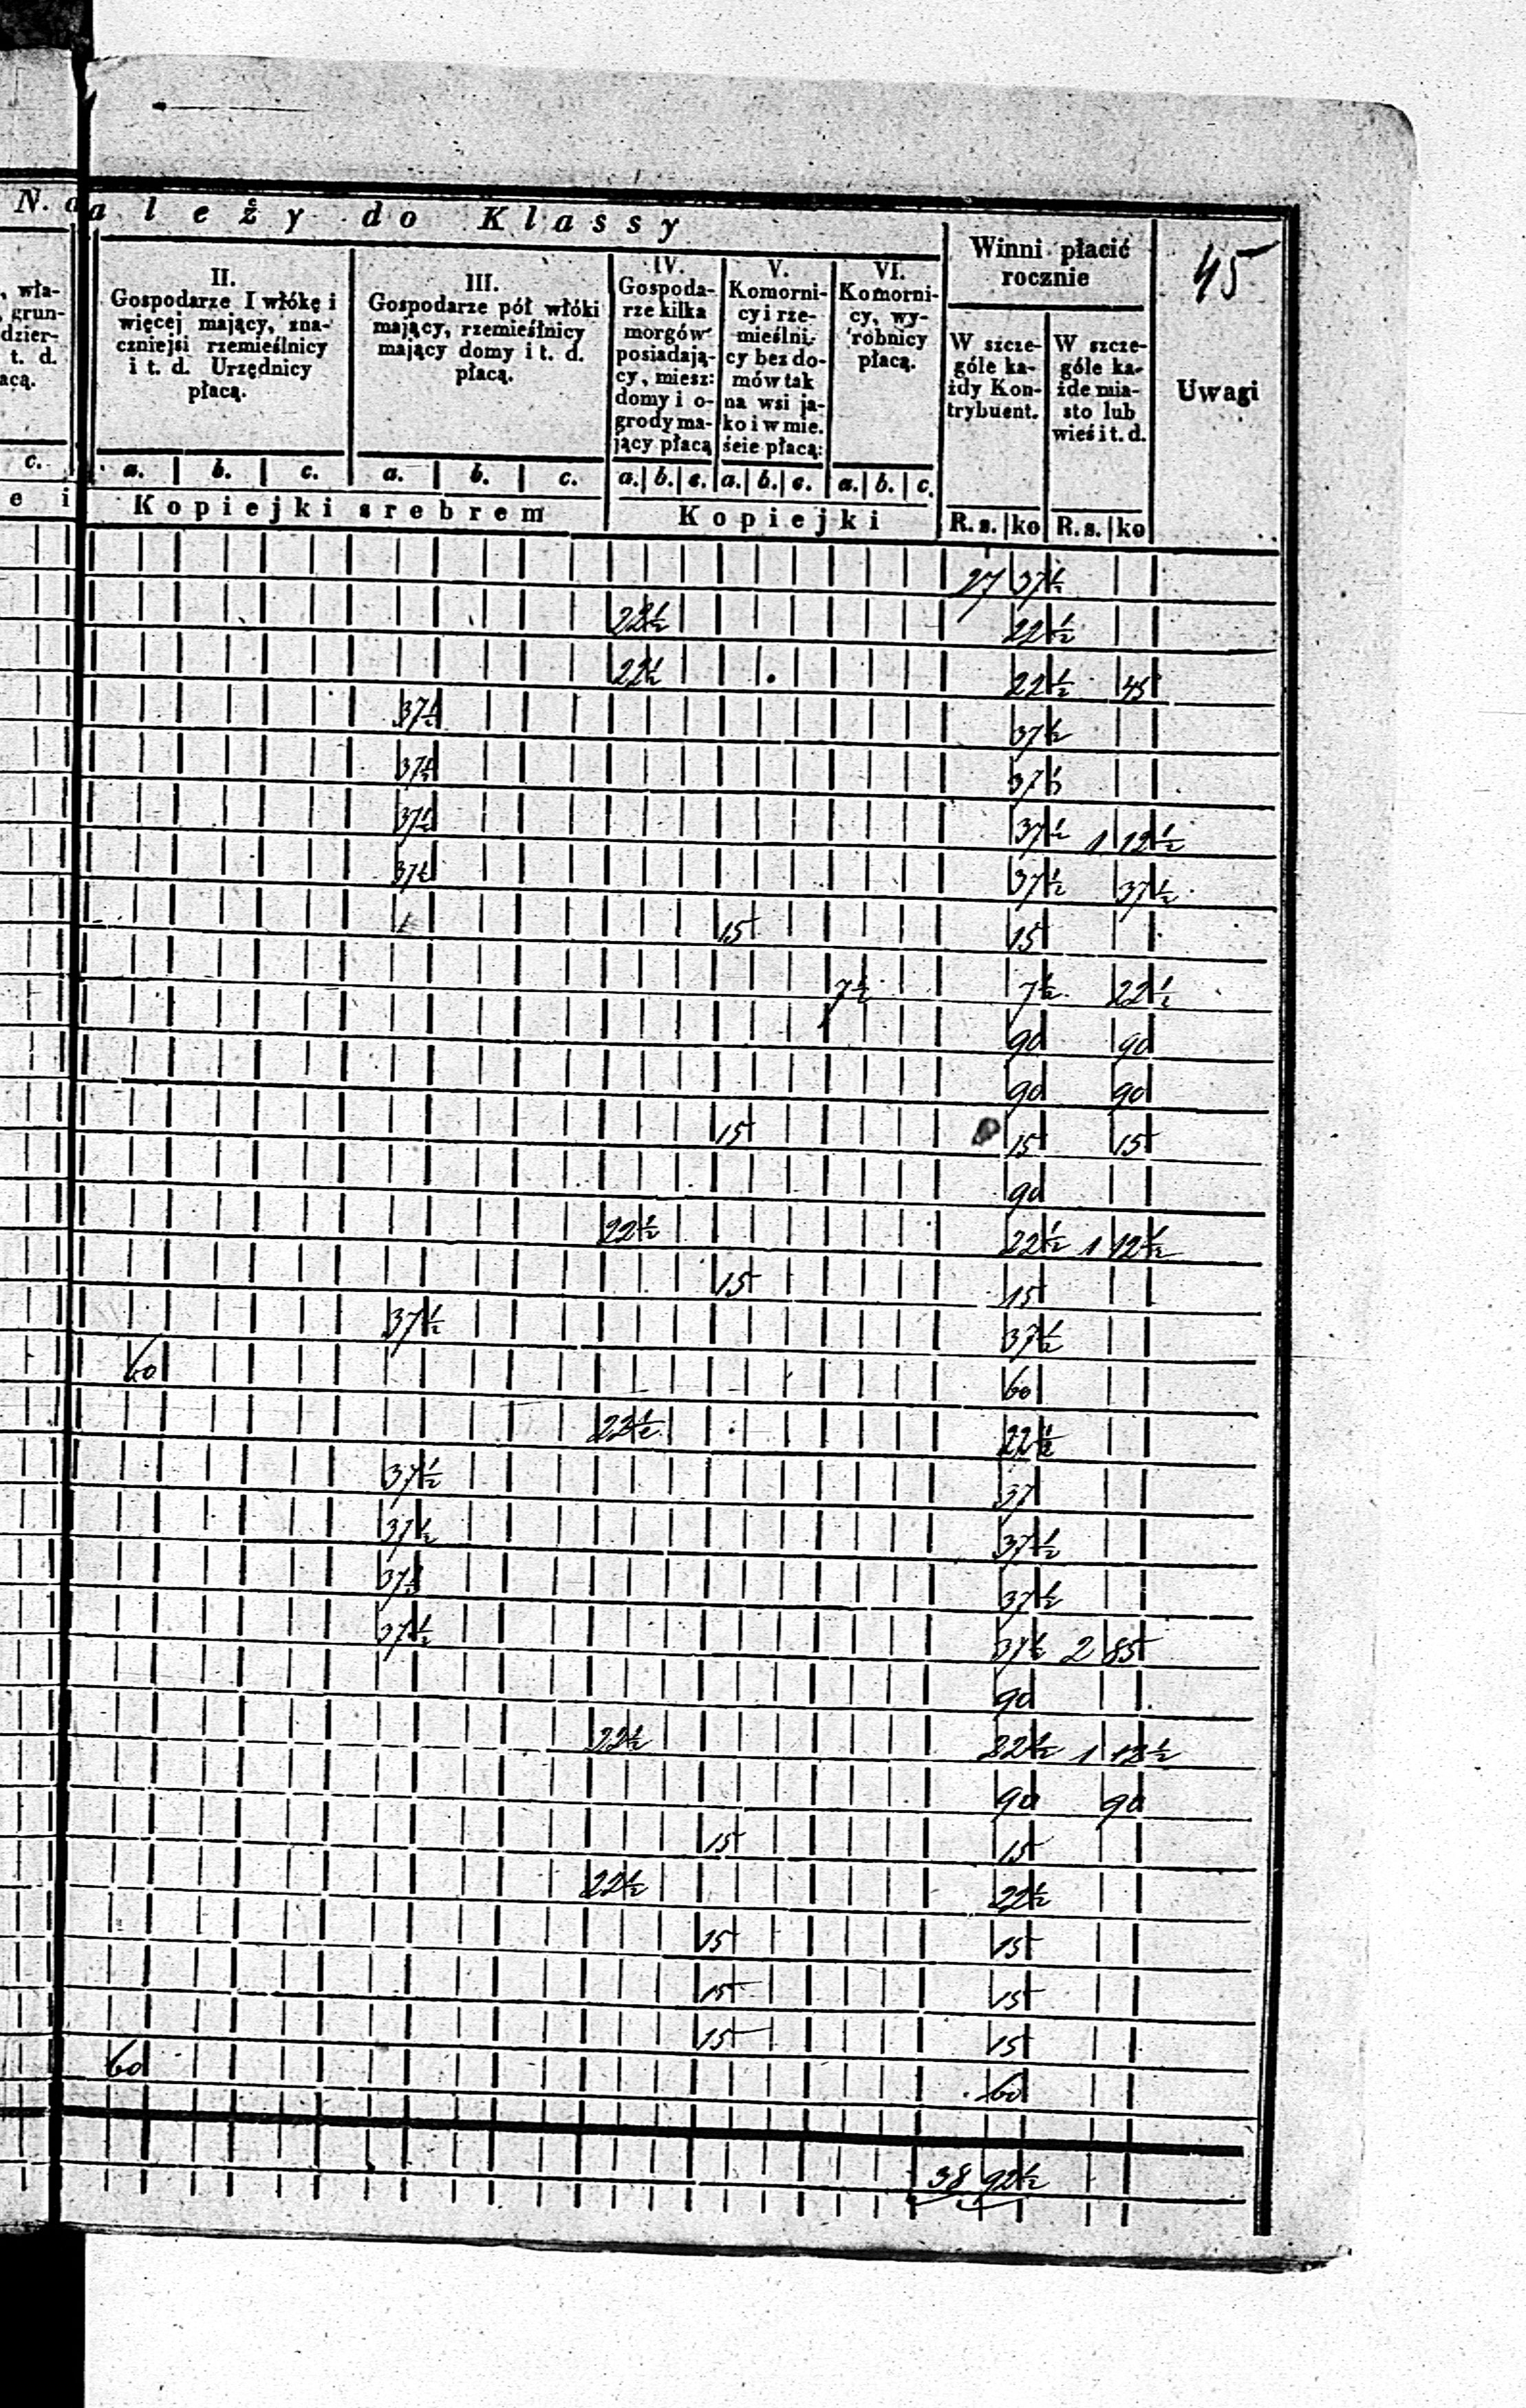 N. a l e ż y d o K l a s s y
45
Winni płacić
rocznie
, wła-
grun-
dzier-
t. d.
acą.
c.
e i
II.
Gospodarze I włókę i
więcej mający, zna-
czniejsi rzemieślnicy
i t. d. Urzędnicy
płacą.
III.
Gospodarze pół włóki
mający, rzemieślnicy
mający domy i t. d.
płacą.
IV.
Gospoda-
rze kilka
morgów
posiadają-
cy, miesz:
domy i o-
grody ma-
jący płacą
V.
Komorni-
cy i rze-
mieślni-
cy bez do-
mów tak
na wsi ja-
ko i w mie.
ście płacą:
VI.
Komorni-
cy, wy-
robnicy
płacą.
W szcze-
góle ka-
żdy Kon-
trybuent.
W szcze-
góle ka-
żde mia-
sto lub
wieś i t. d.
Uwagi
a. b. c. a. b. c. a. b. c. a. b. c. a. b. c.
Kopiejki srebrem Kopiejki R. s. ko R. s. ko
27 37½
22½ 22½
22½ 22½ 45
37½ 37½
37½ 37½
37½ 37½ 1 12½
37½ 37½ 37½
15 15
7½ 7½ 22½
90 90
90 90
15 15 15
90
22½ 22½ 1 12½
15 15
37½ 37½
60 60
22½ 22½
37½ 37
37½ 37½
37½ 37½
37½ 37½ 2 85
90
22½ 22½ 1 12½
90 90
15 15
22½ 22½
15 15
15 15
15 15
60 60
38 92½